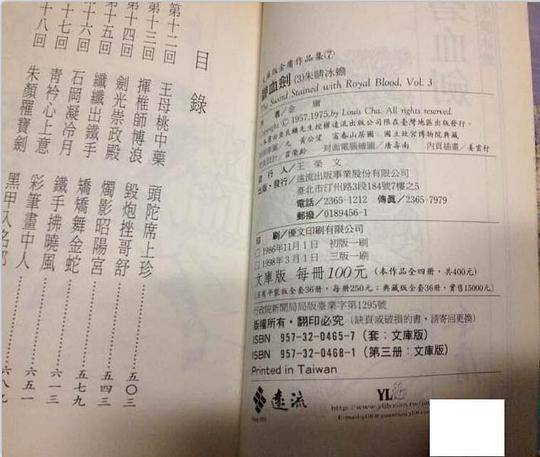 文庫版金庸作品集⑦
碧血劍 (3)朱睛冰蟾
The Sword Stained with Royal Blood, Vol. 3
Copyright © 1957,1975, by Louis Cha. All rights reserved.
封面電腦繪圖/唐壽南
內頁插畫/姜雲行
發行人/王榮文
出版・發行/遠流出版事業股份有限公司
臺北市汀州路3段184號7樓之5
電話/2365-1212 傳真/2365-7979
郵撥/0189456-1
印 刷/優文印刷有限公司
□1986年11月1日 初版一刷
□1998年3月1日 三版一刷
文庫版 每冊100元 (本作品全四冊,共400元)
行政院新聞局局版臺業字第1295號
版權所有・翻印必究 (缺頁或破損的書,請寄回更換)
ISBN 957-32-0465-7 (套:文庫版)
ISBN 957-32-0468-1 (第三冊:文庫版)
Printed in Taiwan
遠流
YL
目錄
第十二回 王母桃中藥 頭陀席上珍 五〇三
第十三回 揮椎師博浪 毀炮挫哥舒 五四三
第十四回 劍光崇政殿 燭影昭陽宮 五七九
十五回 纖纖出鐵手 矯矯舞金蛇 六一三
十六回 石岡凝冷月 鐵手拂曉風 六五一
十七回 青衿心上意 彩筆畫中人 六八九
十八回 朱顏罹寶劍 黑甲入名邦
碧血劍